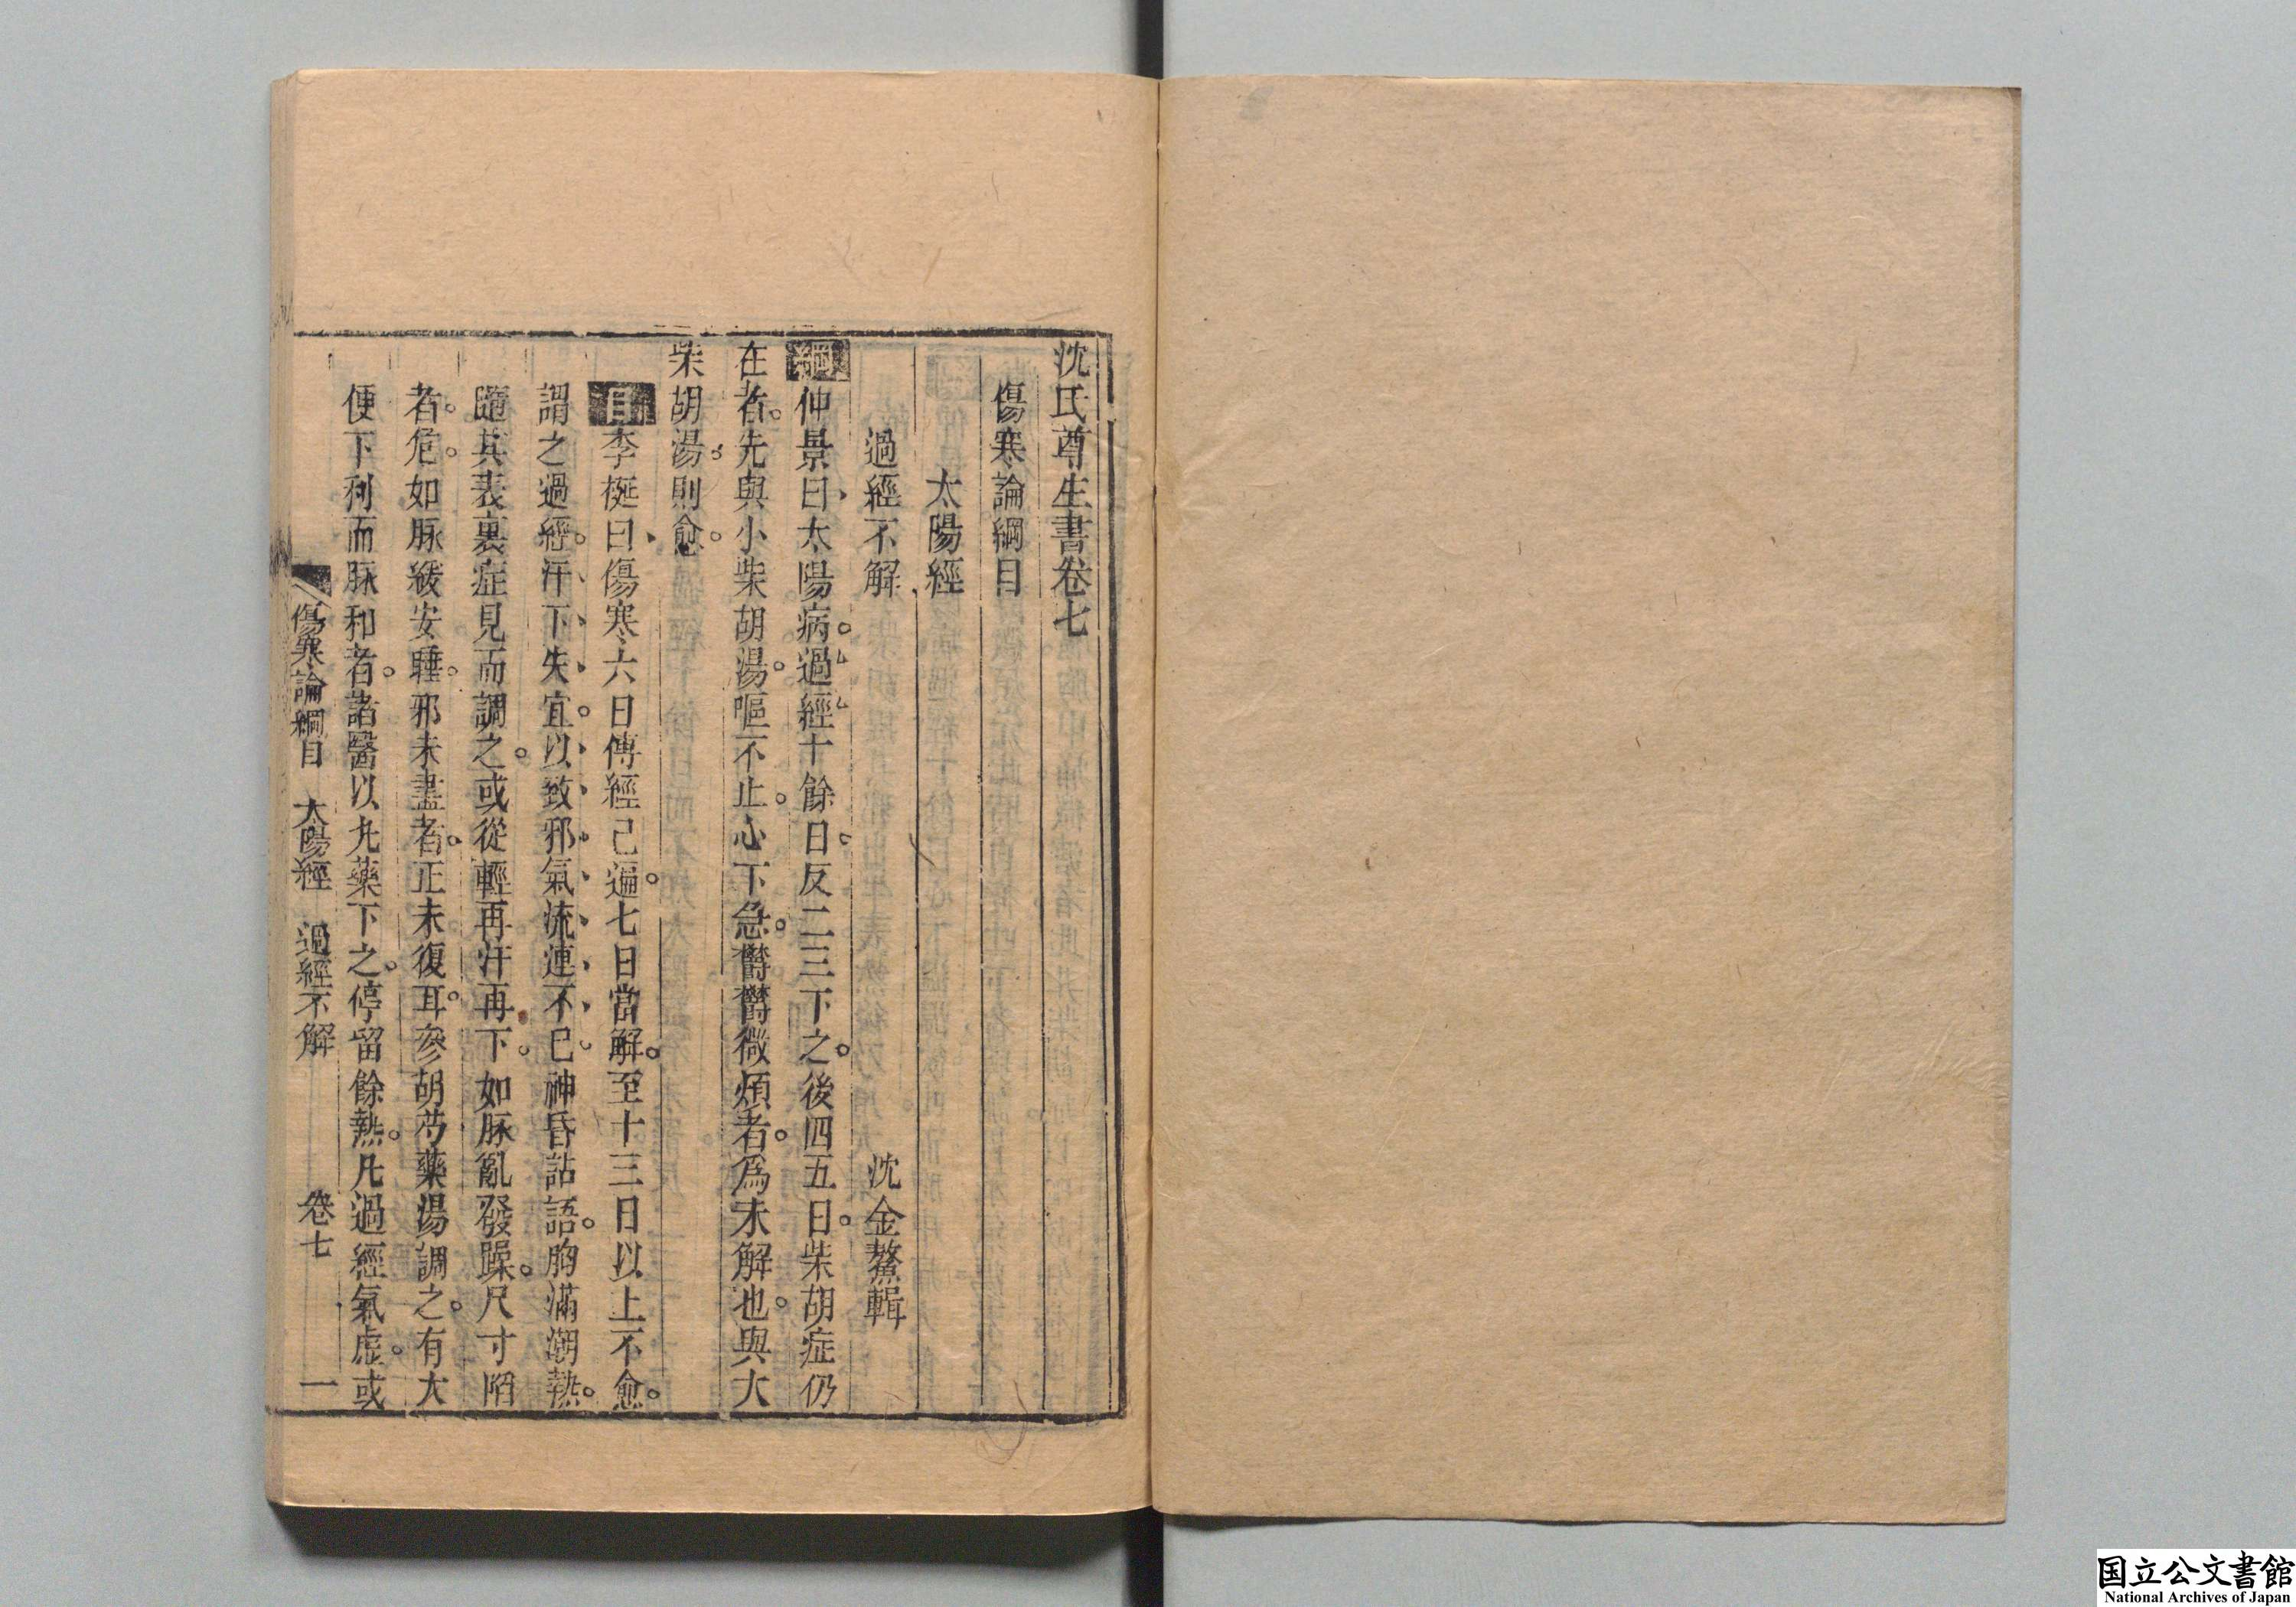 沈氏尊生書卷七
傷寒論綱目
太陽經
過經不解　沈金鰲輯
綱仲景曰太陽病。過經十餘日。反二三下之。後四五日。柴胡症仍
在者。先與小柴胡湯。嘔不止。心下急。鬱鬱微煩者。爲未解也。與大
柴胡湯。則愈。
目李梴曰、傷寒六日傳經已遍。七日當解。至十三日以上不愈。
謂之過經。汗、下、失、宜。以、致、邪、氣、流、連、不、已、神昏詀語。胸滿潮熱。
隨其表裏症見而調之。或從輕再汗再下。如脉亂發躁。尺寸陷
者。危。如脉緩安睡。邪未盡者。正未復耳。參胡芍藥湯調之。有大
便下利而脉和者。諸醫以丸藥下之。停留餘熱。凡過經氣虛。或
傷寒論綱目　太陽經　過經不解　卷七　一
国立公文書館
National Archives of Japan